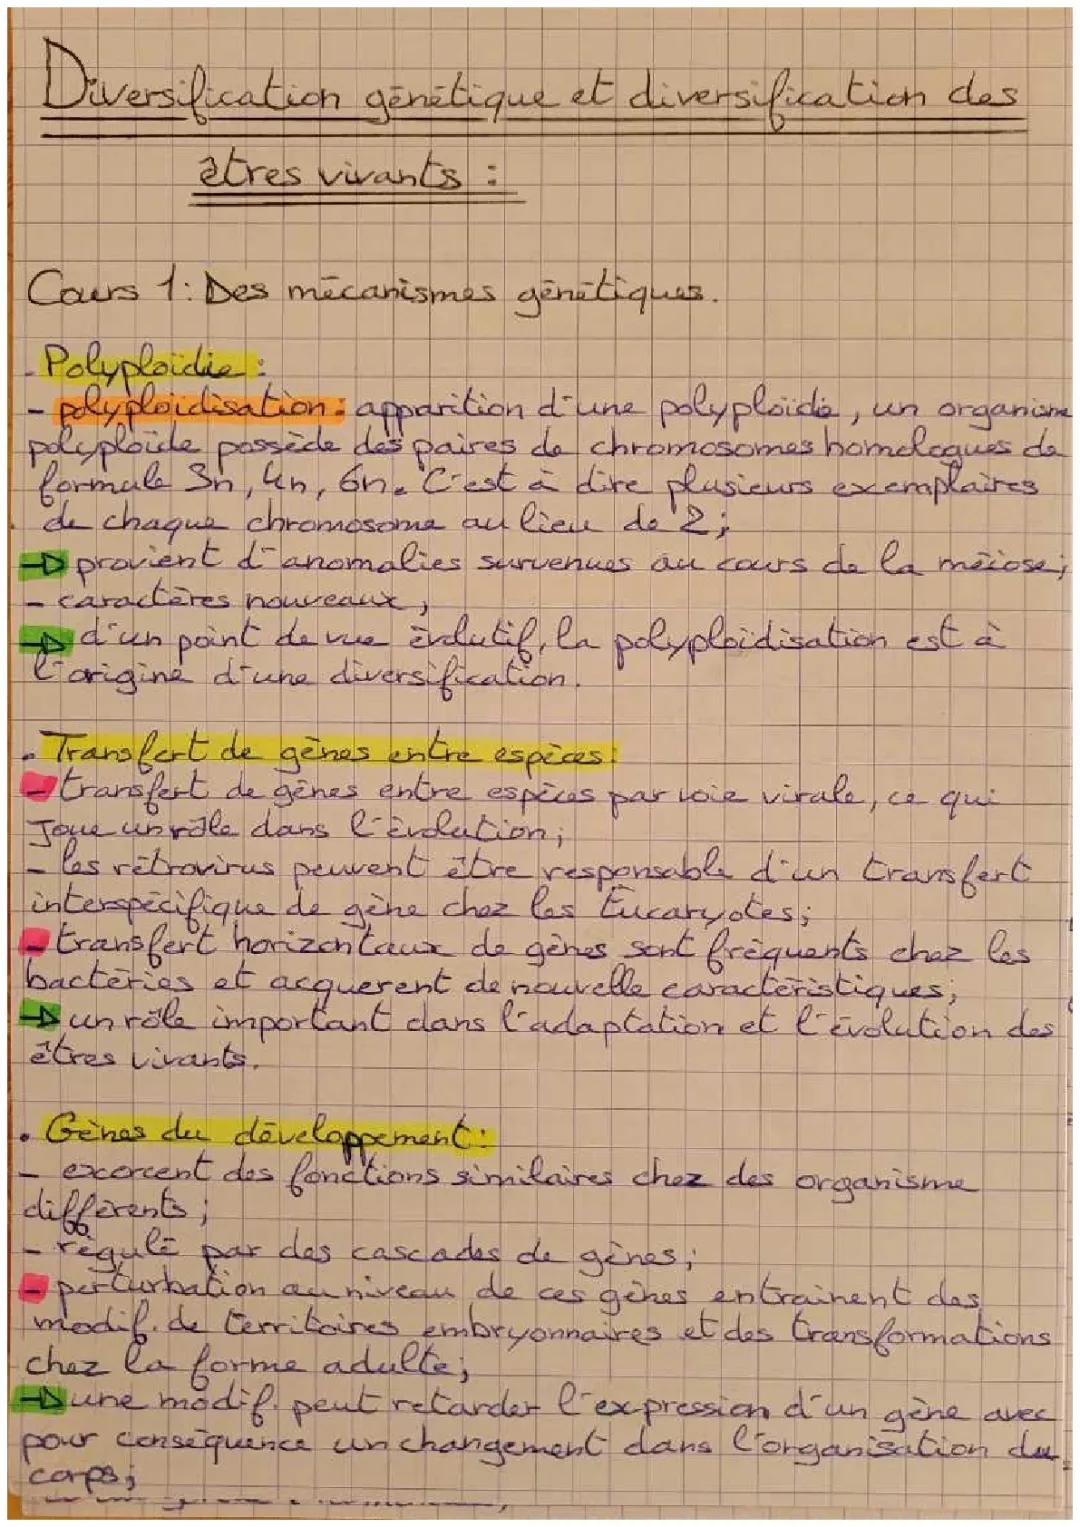 Diversification génétique et diversification des
êtres vivants :
Cours 1: Des mécanismes génétiques.
. Polyploïdie :
- polyploïdisation : apparition d'une polyploïdie, un organisme
polyploïde possède des paires de chromosomes homologues de
formule 3n, 4n, 6n. C'est à dire plusieurs exemplaires
de chaque chromosome au lieu de 2 ;
→ provient d'anomalies survenues au cours de la méiose ;
- caractères nouveaux ;
→ d'un point de vue évolutif, la polyploïdisation est à
l'origine d'une diversification.
. Transfert de gènes entre espèces :
- transfert de gènes entre espèces par voie virale, ce qui
joue un rôle dans l'évolution ;
- les rétrovirus peuvent être responsable d'un transfert
interspécifique de gène chez les Eucaryotes ;
- transfert horizontaux de gènes sont fréquents chez les
bactéries et acquerent de nouvelle caractéristiques ;
→ un rôle important dans l'adaptation et l'évolution des
êtres vivants.
. Gènes du développement :
- exercent des fonctions similaires chez des organisme
différents ;
- régulé par des cascades de gènes ;
- perturbation au niveau de ces gènes entrainent des
modif. de territoires embryonnaires et des transformations
chez la forme adulte ;
→ une modif. peut retarder l'expression d'un gène avec
pour conséquence un changement dans l'organisation du
corps ;